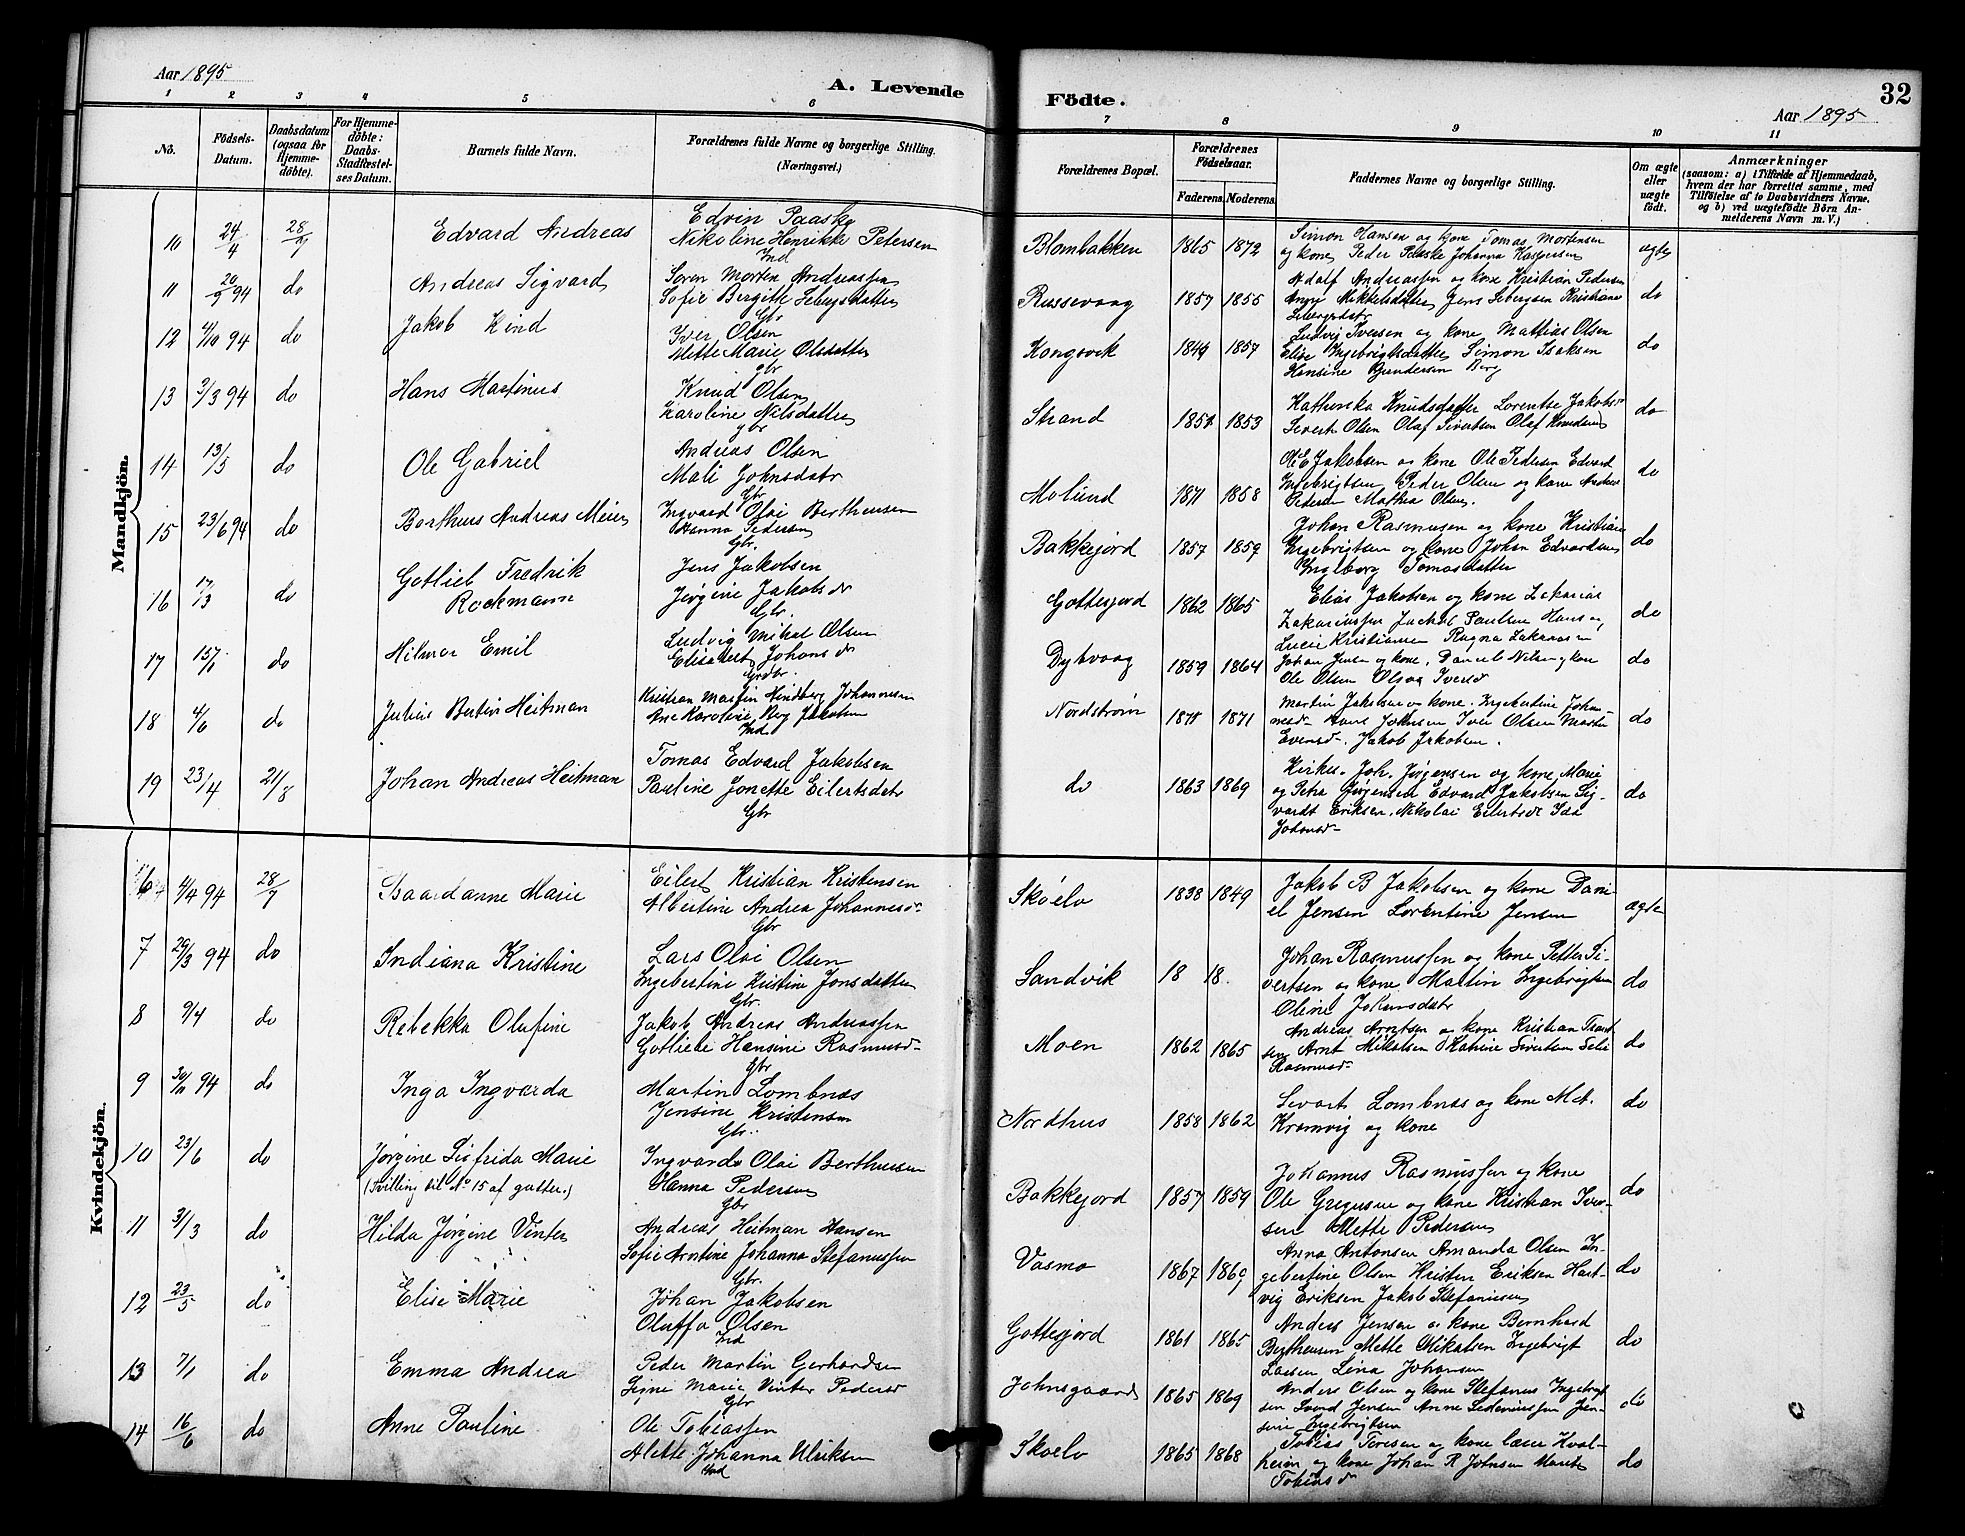 Aar 1895
A. Levende Födte.
32
Aar 1895
1 2 3 4 5 6 7 8 9 10 11
No.
Födsels-Datum.
Daabsdatum (ogsaa for Hjemmedöbte).
For Hjemmedöbte: Daabs-Stadfæstelses Datum.
Barnets fulde Navn.
Forældrenes fulde Navne og borgerlige Stilling. (Næringsvei.)
Forældrenes Bopæl.
Forældrenes Födselsaar.
Faderens. Moderens.
Faddernes Navne og borgerlige Stilling.
Om ægte eller uægte födt.
Anmærkninger
(saasom: a) i Tilfælde af Hjemmedaab, hvem der har forrettet samme, med Tilföielse af to Daabsvidners Navne. og b) ved uægtefödte Börn Anmelderens Navn m. V.)
Mandkjön.
10 24/4 28/7 Edvard Andreas
Edvin Paaske
Nikoline Henrikke Petersen
Ind
Blombakken 1865 1872
Simon Hansen og kone Tomas Mortensen
og kone, Peder Paaske Johanna Kaspersen
ægte
11 20/9 94 do Andreas Sigvard
Søren Morten Andreassen
Sofie Bergitte Sebergsdatter
Gbr
Russevaag 1857 1855
Adolf Andreassen og kone Kristian Pedersen
Anne Mikkelsdatter Jens Sebergsen Kristiane
Sebergsdatr
do
12 4/10 94 do Jakob Kind
Iver Olsen
Mette Marie Olsdatter
gbr
Kongsvik 1849 1857
Ludvig Iversen og kone Mathias Olsen
Elise Ingebrigtsdatter Simon Isaksen
Hansine Gundersen Berg
do
13 3/3 94 do Hans Martinus
Knud Olsen
Karoline Nilsdatter
gbr
Strand 1857 1853
Kathinka Knudsdatter Lorentse Jakobs
Sivert Olsen Olaf Sivertsen Olaf Knudsen
do
14 13/5 do Ole Gabriel
Andreas Olsen
Mali Johnsdatr
Gbr
Molund 1871 1858
Ole E Jakobsen og kone Ole Pedersen Edvard
Ingebrigtsen Peder Olsen og kone Andrea
Pedersen Mathea Olsen.
do
15 23/6 94 do Berthus Andreas Meier
Ingvard Olai Bertheusen
Hanna Pedersen
Gbr.
Bakkejord 1857 1859
Johan Rasmusen og kone Kristian
Ingebrigtsen og kone Johan Edvardsen
Ingeborg Tomasdatter
do
16 17/3 do Gotlieb Fredrik
Rockmann
Jens Jakobsen
Jørgine Jakobsdr
Gbr.
Gottesjord 1862 1865
Elias Jakobsen og kone Zakarias
Zakariassen Jachob Paulsen Hans og
Lucie Kristiansen Ragna Zakrassen
do
17 15/1 do Hilmar Emil
Ludvig Mikal Olsen
Elisabert Johansdr
Grdbr.
Dybvaag 1859 1864
Johan Jensen og kone. Daniel Nilsen og kone
Ole Olsen Olava Iversdr
do
18 4/6 do Julius Bertin Heitman
Kristian Martin Lindberg Johannesen
Ane Karoline Berg Jakobsen
Ind
Nordstrøm 1871 1871
Martin Jakobsen og kone. Ingebertine Johan-
nesd- Hans Johnsen Iver Olsen Martin
Evensd-. Jakob Jakobsen.
do
19 23/4 21/8 Johan Andreas Heitman
Tomas Edvard Jakobsen
Pauline Jonette Eilertsdatr
Gbr
do 1863 1869
Kirkes. Joh. Jørgensen og kone Marie
og Petra Jørgensen Edvard Jakobsen Sig-
vardt Eriksen. Nikolai Eilertsdr Ida
Johansd-
do
Kvindekjön.
6 4/4 94 28/7 Baardanne Marie
Eilert Kristian Kristensen
Albertine Andrea Johannesd-
Gbr
Skóelv 1838 1849
Jakob B Jakobsen og kone Dani-
el Jensen Lorentine Jensen
ægte
7 29/3 94 do Indiana Kristine
Lars Olai Olsen
Ingebertine Kristine Jonsdatter
Gbr.
Sandvik 18 18.
Johan Rasmussen og kone Petter Si-
vertsen og kone Martin Ingebrigtsen
Oline Johansdatr
do
8 9/4 do Rebekka Olufine
Jakob Andreas Andreassen
Gotliebe Hansine Rasmusd-
Gbr
Moen 1862 1865
Andreas Arntsen og kone Kristian Trant-
sen Arnt Mikalsen Katrine Sivertsen Seli
Rasmusd-
do
9 30/11 94 do Inga Ingvarda
Martin Lombnæs
Jensine Kristensen
Gbr..
Nordhus 1858 1862
Sivart Lombnæs og kone Mat.
Kramvig og kone
do
10 23/6 do Jørgine Sigfrida Marie
(Tvilling til No 15 af gutter.)
Ingvard Olai Bertheusen
Hanna Pedersen
gbr
Bakkejord 1857 1859
Johannes Rasmussen og kone
Ole Gregusen og kone Kristian Iver-
sen Mette Pedersen
do
11 31/3 do Hilda Jørgine Vinter
Andreas Heitman Hansen
Sofie Arntine Johanna Stefanussen
Gbr.
Vasmo 1867 1869
Anna Antonsen Amanda Olsen In-
gebertine Olsen Kristen Eriksen Hart-
vig Eriksen Jakob Stefanussen
do
12 23/5 do Elise Marie
Johan Jakobsen
Oluffa Olsen
Ind
Gottesjord 1861 1865
Anders Jensen og kone Bernhard
Bertheusen Mette Mikalsen Ingebrigt
Larsen Lina Johansen
do
13 7/1 do Emma Andrea
Peder Martin Gerhardsen
Signe Marie Vinter Pedersd
Gbr
Johnsgaard 1865 1869
Anders Olsen og kone Stefanus Ingebrigt-
sen Svend Jensen Anne Sedeniussen Jen-
sine Ingebrigtsen
do
14 16/6 do Anne Pauline
Ole Tobiassen
Alette Johanna Ulriksen
Ind
Skoelv 1865 1868
Tobias Toresen og kone Lærer Kval-
heim og kone Johan R Johnsen Marit
Tobiasdr
do